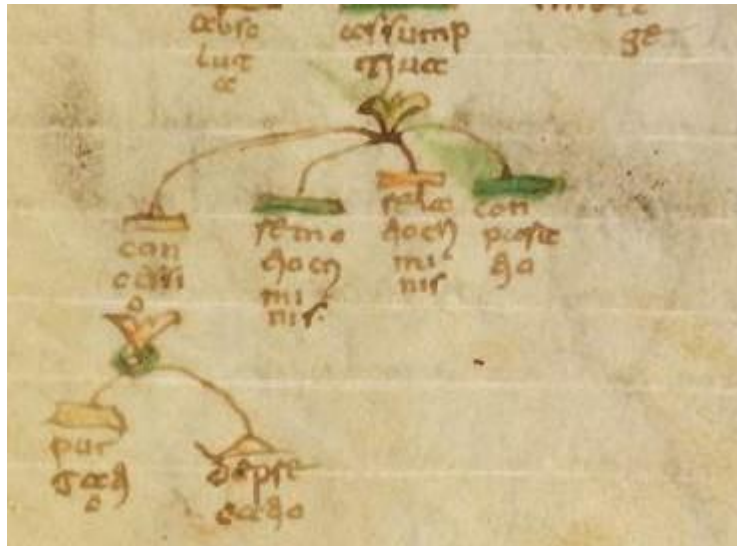 abso
lut
a
assump
tiua
ge
con
cessi
o
remo
tio cri
mi
nis
rela
tio cri
mi
nis
con
para
tio
pur
gati
o
depre
catio